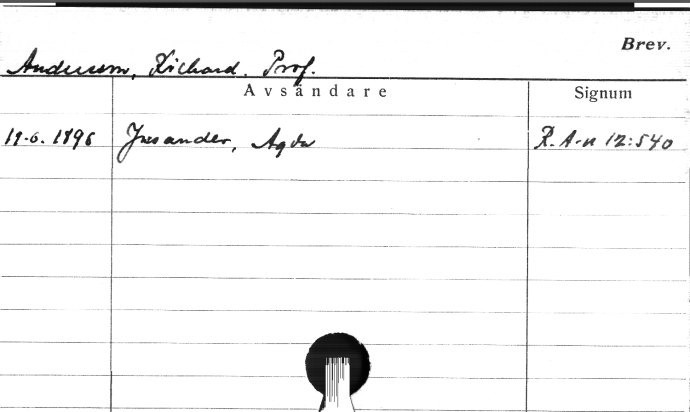 Brev.
Andersson, Richard. Prof.
Avsändare Signum
19.6.1896 Agda R. A-n 12:540